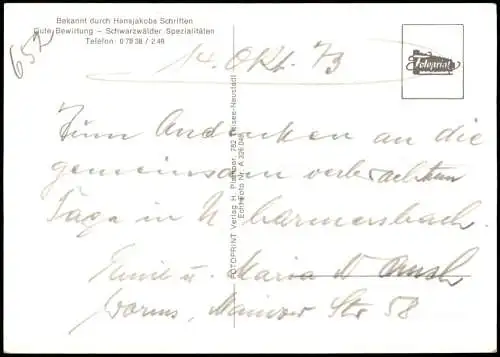 Bekannt durch Hansjakobs Schriften
Gute Bewirtung – Schwarzwälder Spezialitäten
Telefon 0 78 38 / 2 49
652
14. Okt. 73
Fotoprint
Zum Andenken an die
gemeinsam verbrachten
Tage in N harmersbach.
Emil u. Maria
Worms, Mainzer Str 58
FOTOPRINT Verlag H. 782 Titisee-Neustadt
Echt Foto Nr. A 326 049